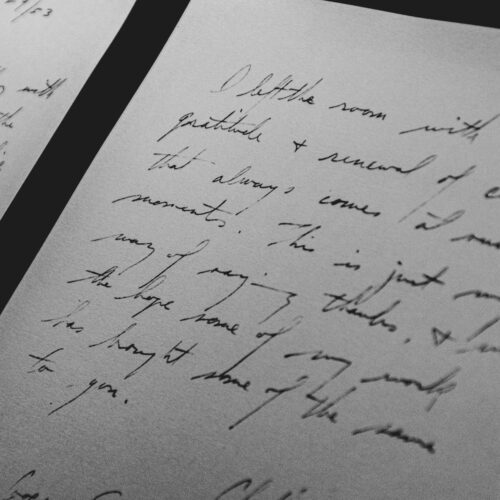 29/53
with
the
I left the room with
gratitude + renewal of
that always comes at
moments. This is just my
way of saying thanks, +
the hope some of my work
has brought some of the same
to you.